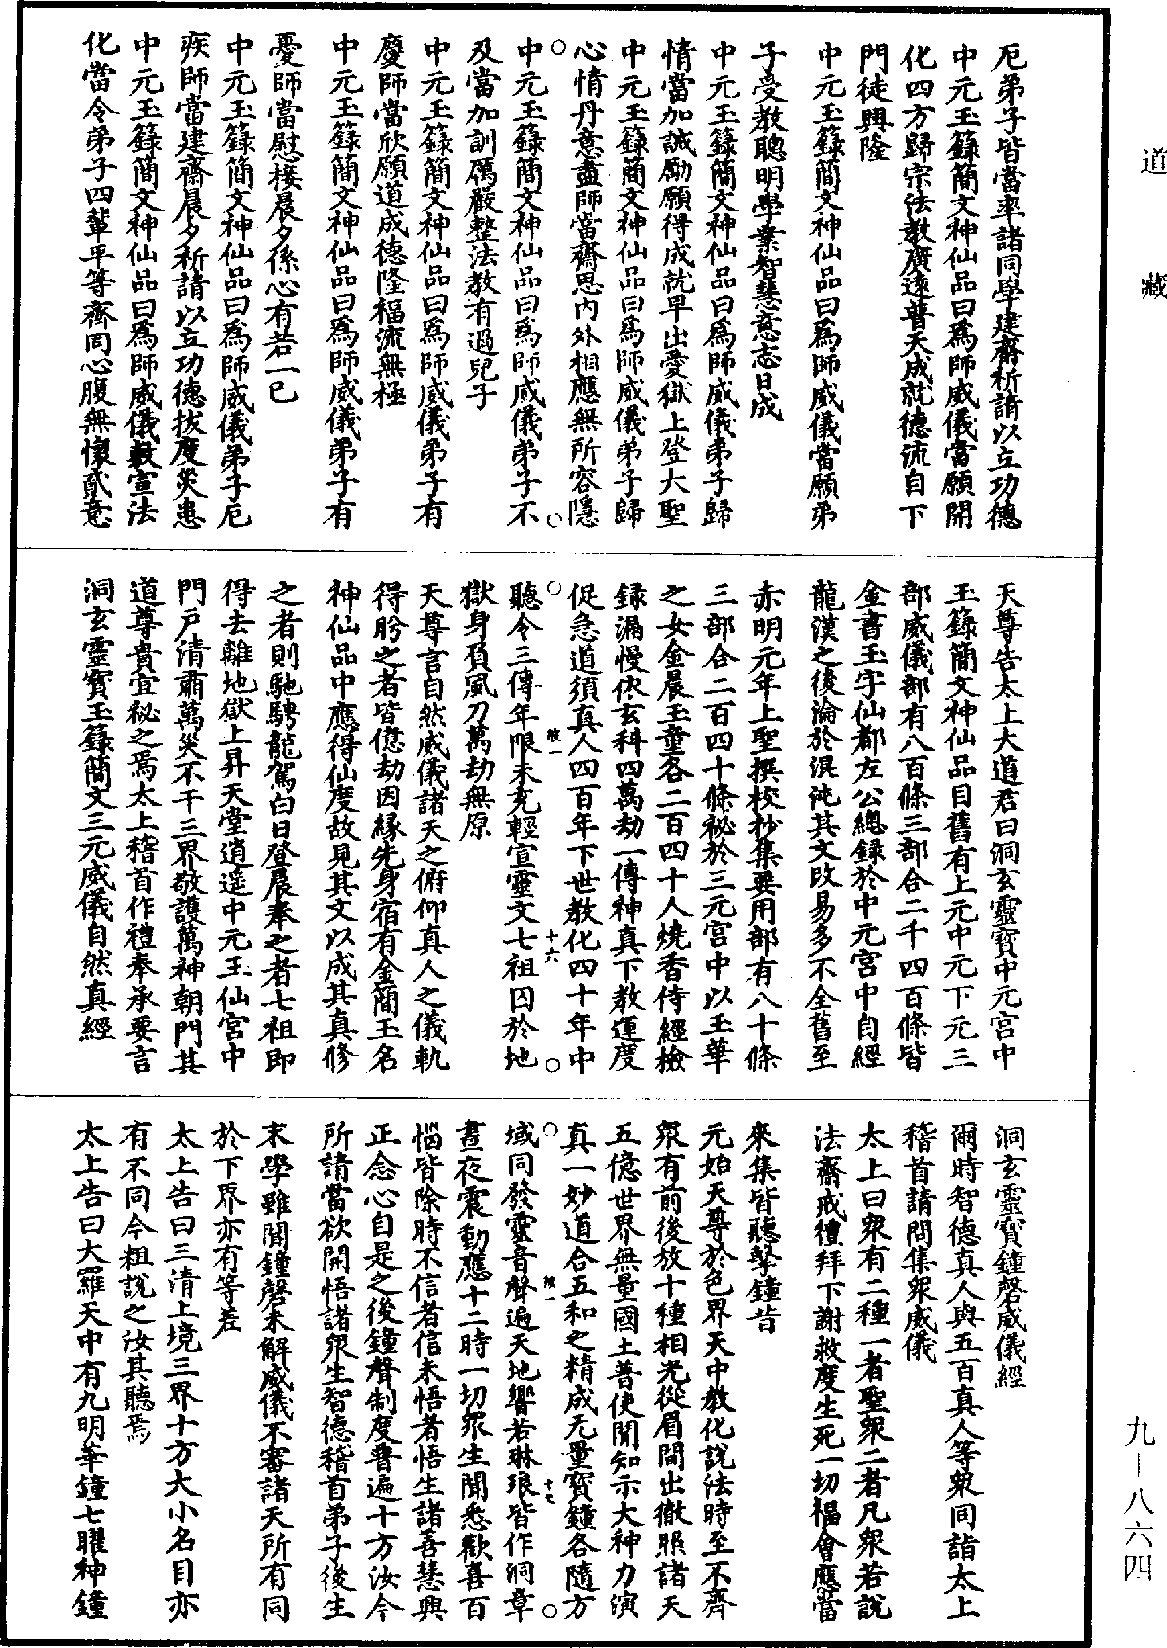 道藏
厄弟子皆當率諸同學建齋祈請以立功德
中元玉籙簡文神仙品曰爲師威儀當願開
化四方歸宗法教廣遠普天成就德流自下
門徒興隆
中元玉籙簡文神仙品曰爲師威儀當願弟
子受教聰明學業智慧意志日成
中元玉籙簡文神仙品曰爲師威儀弟子歸
情當加誠勵願得成就早出愛獄上登大聖
中元玉籙簡文神仙品曰爲師威儀弟子歸
心情丹意盡師當齋思內外相應無所容隱
中元玉籙簡文神仙品曰爲師威儀弟子不
及當加訓厲嚴整法教有過兒子
中元玉籙簡文神仙品曰爲師威儀弟子有
慶師當欣願道成德隆福流無極
中元玉籙簡文神仙品曰爲師威儀弟子有
憂師當慰接晨夕係心有若一已
中元玉籙簡文神仙品曰爲師威儀弟子厄
疾師當建齋晨夕祈請以立功德拔度災患
中元玉籙簡文神仙品曰爲師威儀敷宣法
化當令弟子四輩平等齊同心腹無懷貳意
天尊告太上大道君曰洞玄靈寶中元宮中
玉籙簡文神仙品目舊有上元中元下元三
部威儀部有八百條三部合二千四百條皆
金書玉字仙都左公總録於中元宮中自經
龍漢之後淪於混沌其文改易多不全舊至
赤明元年上聖撰校抄集要用部有八十條
三部合二百四十條祕於三元宮中以玉華
之女金晨玉童各二百四十人燒香侍經檢
録漏慢依玄科四萬劫一傳神真下教運度
促急道須真人四百年下世教化四十年中
聽令三傳年限未充輕宣靈文七祖囚於地
獄身負風刀萬劫無原
天尊言自然威儀諸天之俯仰真人之儀軌
得眄之者皆億劫因緣先身宿有金簡玉名
神仙品中應得仙度故見其文以成其真修
之者則馳騁龍駕白日登晨奉之者七祖即
得去離地獄上昇天堂逍遙中元玉仙宮中
門戶清肅萬災不干三界敬護萬神朝門其
道尊貴宜秘之焉太上稽首作禮奉承要言
洞玄靈寶玉籙簡文三元威儀自然真經
洞玄靈寶鐘磬威儀經
爾時智德真人與五百真人等衆同詣太上
稽首請問集衆威儀
太上曰衆有二種一者聖衆二者凡衆若說
法齋戒禮拜下謝救度生死一切福會應當
來集皆聽擊鐘昔
元始天尊於色界天中教化說法時至不齊
衆有前後放十種相光從眉間出徹照諸天
五億世界無量國土善使開知示大神力演
真一妙道合五和之精成无量寶鐘各隨方
域同發靈音聲遍天地響若琳琅皆作洞章
晝夜震動應十二時一切衆生聞悉歡喜百
惱皆除時不信者信未悟者悟生諸善慧興
正念心自是之後鐘聲制度普遍十方汝今
所請當欲開悟諸衆生智德稽首弟子後生
末學雖聞鐘磬未解威儀不審諸天所有同
於下界亦有等差
太上告曰三清上境三界十方大小名目亦
有不同今粗說之汝其聽焉
太上告曰大羅天中有九明華鐘七曜神鐘
九－八六四